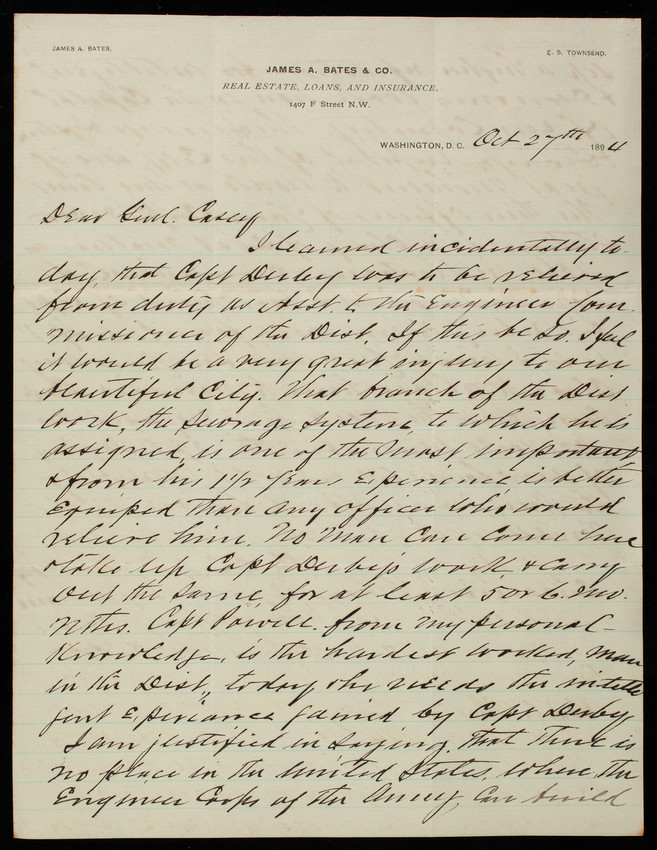 JAMES A. BATES.
E. B. TOWNSEND.
JAMES A. BATES & CO.
REAL ESTATE, LOANS, AND INSURANCE,
1407 F Street N.W.
WASHINGTON, D. C. Oct 27th 1894
Dear Genl. Casey
I learned incidentally to-
day, that Capt Derby was to be relieved
from duty as Asst. to the Engineer Com-
missioner of the Dist. If this be so. I feel
it would be a very great injury to our
beautiful City. That branch of the Dist
work, the sewerage system, to which he is
assigned, is one of the most important
& from his 1 1/2 years Experience, is better
Equiped than any officer who would
relieve him. No man can come here
& take up Capt Derby's work & carry
out the same, for at least 5 or 6. mo-
nths. Capt Powell. from my personal
Knowledge, is the hardest worked, man
in the Dist., today & he needs the intelli
gent Experiance gained by Capt Derby
I am justified in saying, that there is
no place in the United States, where, the
Engineer Corps of the Army, can build